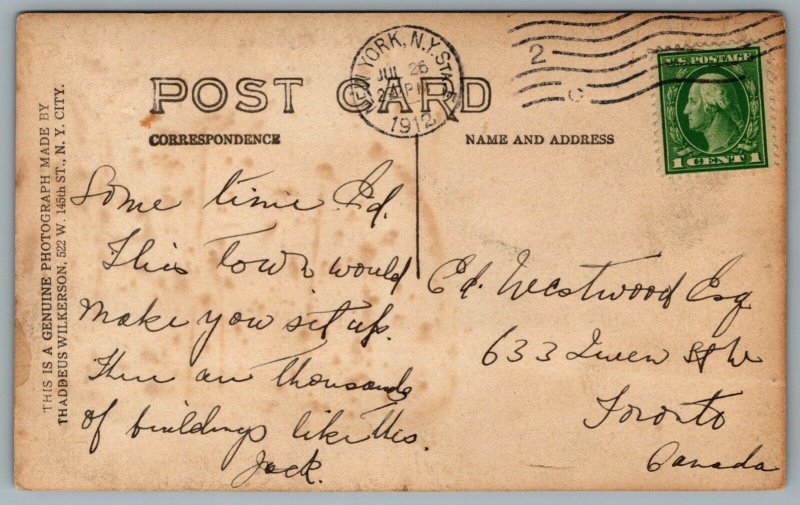 POST CARD
CORRESPONDENCE
NAME AND ADDRESS
THIS IS A GENUINE PHOTOGRAPH MADE BY
THADDEUS WILKERSON, 522 W. 145th ST., N. Y. CITY.
NEW YORK, N.Y.
JUL 26
1912
2
C
U.S. POSTAGE
1 CENT 1
Some time Ed.
This town would
make you sit up.
There are thousands
of buildings like this.
Jack.
Ed. Westwood Esq
633 Queen St W
Toronto
Canada